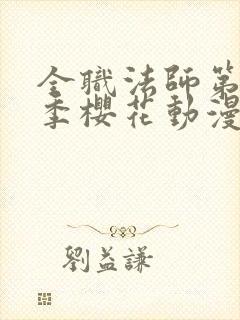 全職法師第
季櫻花動漫
劉益謙